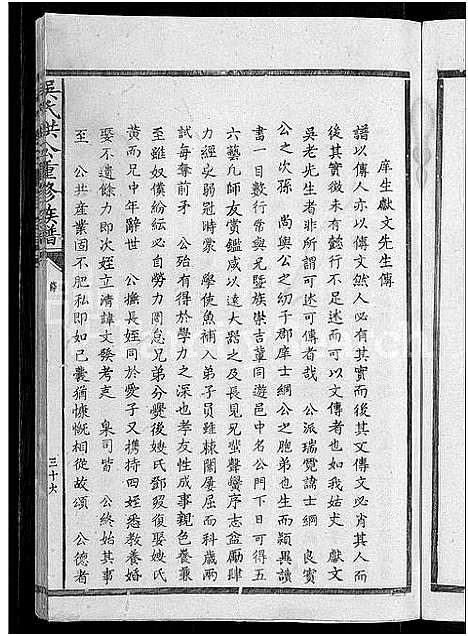 庠生獻文先生傳
譜以傳人亦以傳文然人必有其實而後其文傳文必肖其人而
後其實徵未有懿行不足述而可以文傳者也如我姑丈　獻文
吳老先生者非所謂可述可傳者哉　公派瑞霓諱士綱　良寶
公之次孫　尚與公之幼子郡庠士綱公之胞弟也生而穎異讀
書一目數行常與兄暨族崇吉輩同遊邑中名公門下日可得五
六藝凡師友賞鑑咸以遠大器之及長見兄蜚聲黌序志益勵肆
力經史弱冠時蒙　學使魚補入弟子員雖棘闈屢屈而科歲兩
試每奪前矛　公殆有得於學力之深也孝友性成事親色養兼
至雖奴僕紛紜必自勞力罔怠兄弟分爨後嫂氏鄧歿復娶嫂氏
黄而兄中年辭世　公撫長姪同於愛子又携持四姪悉教養婚
娶不遺餘力即次姪立清諱文發考吏　臬司皆　公終始其事
至　公共産業固不肥私即如已囊猶慷慨相從故頌　公德者
吳氏洪公重修族譜
傳
三十六